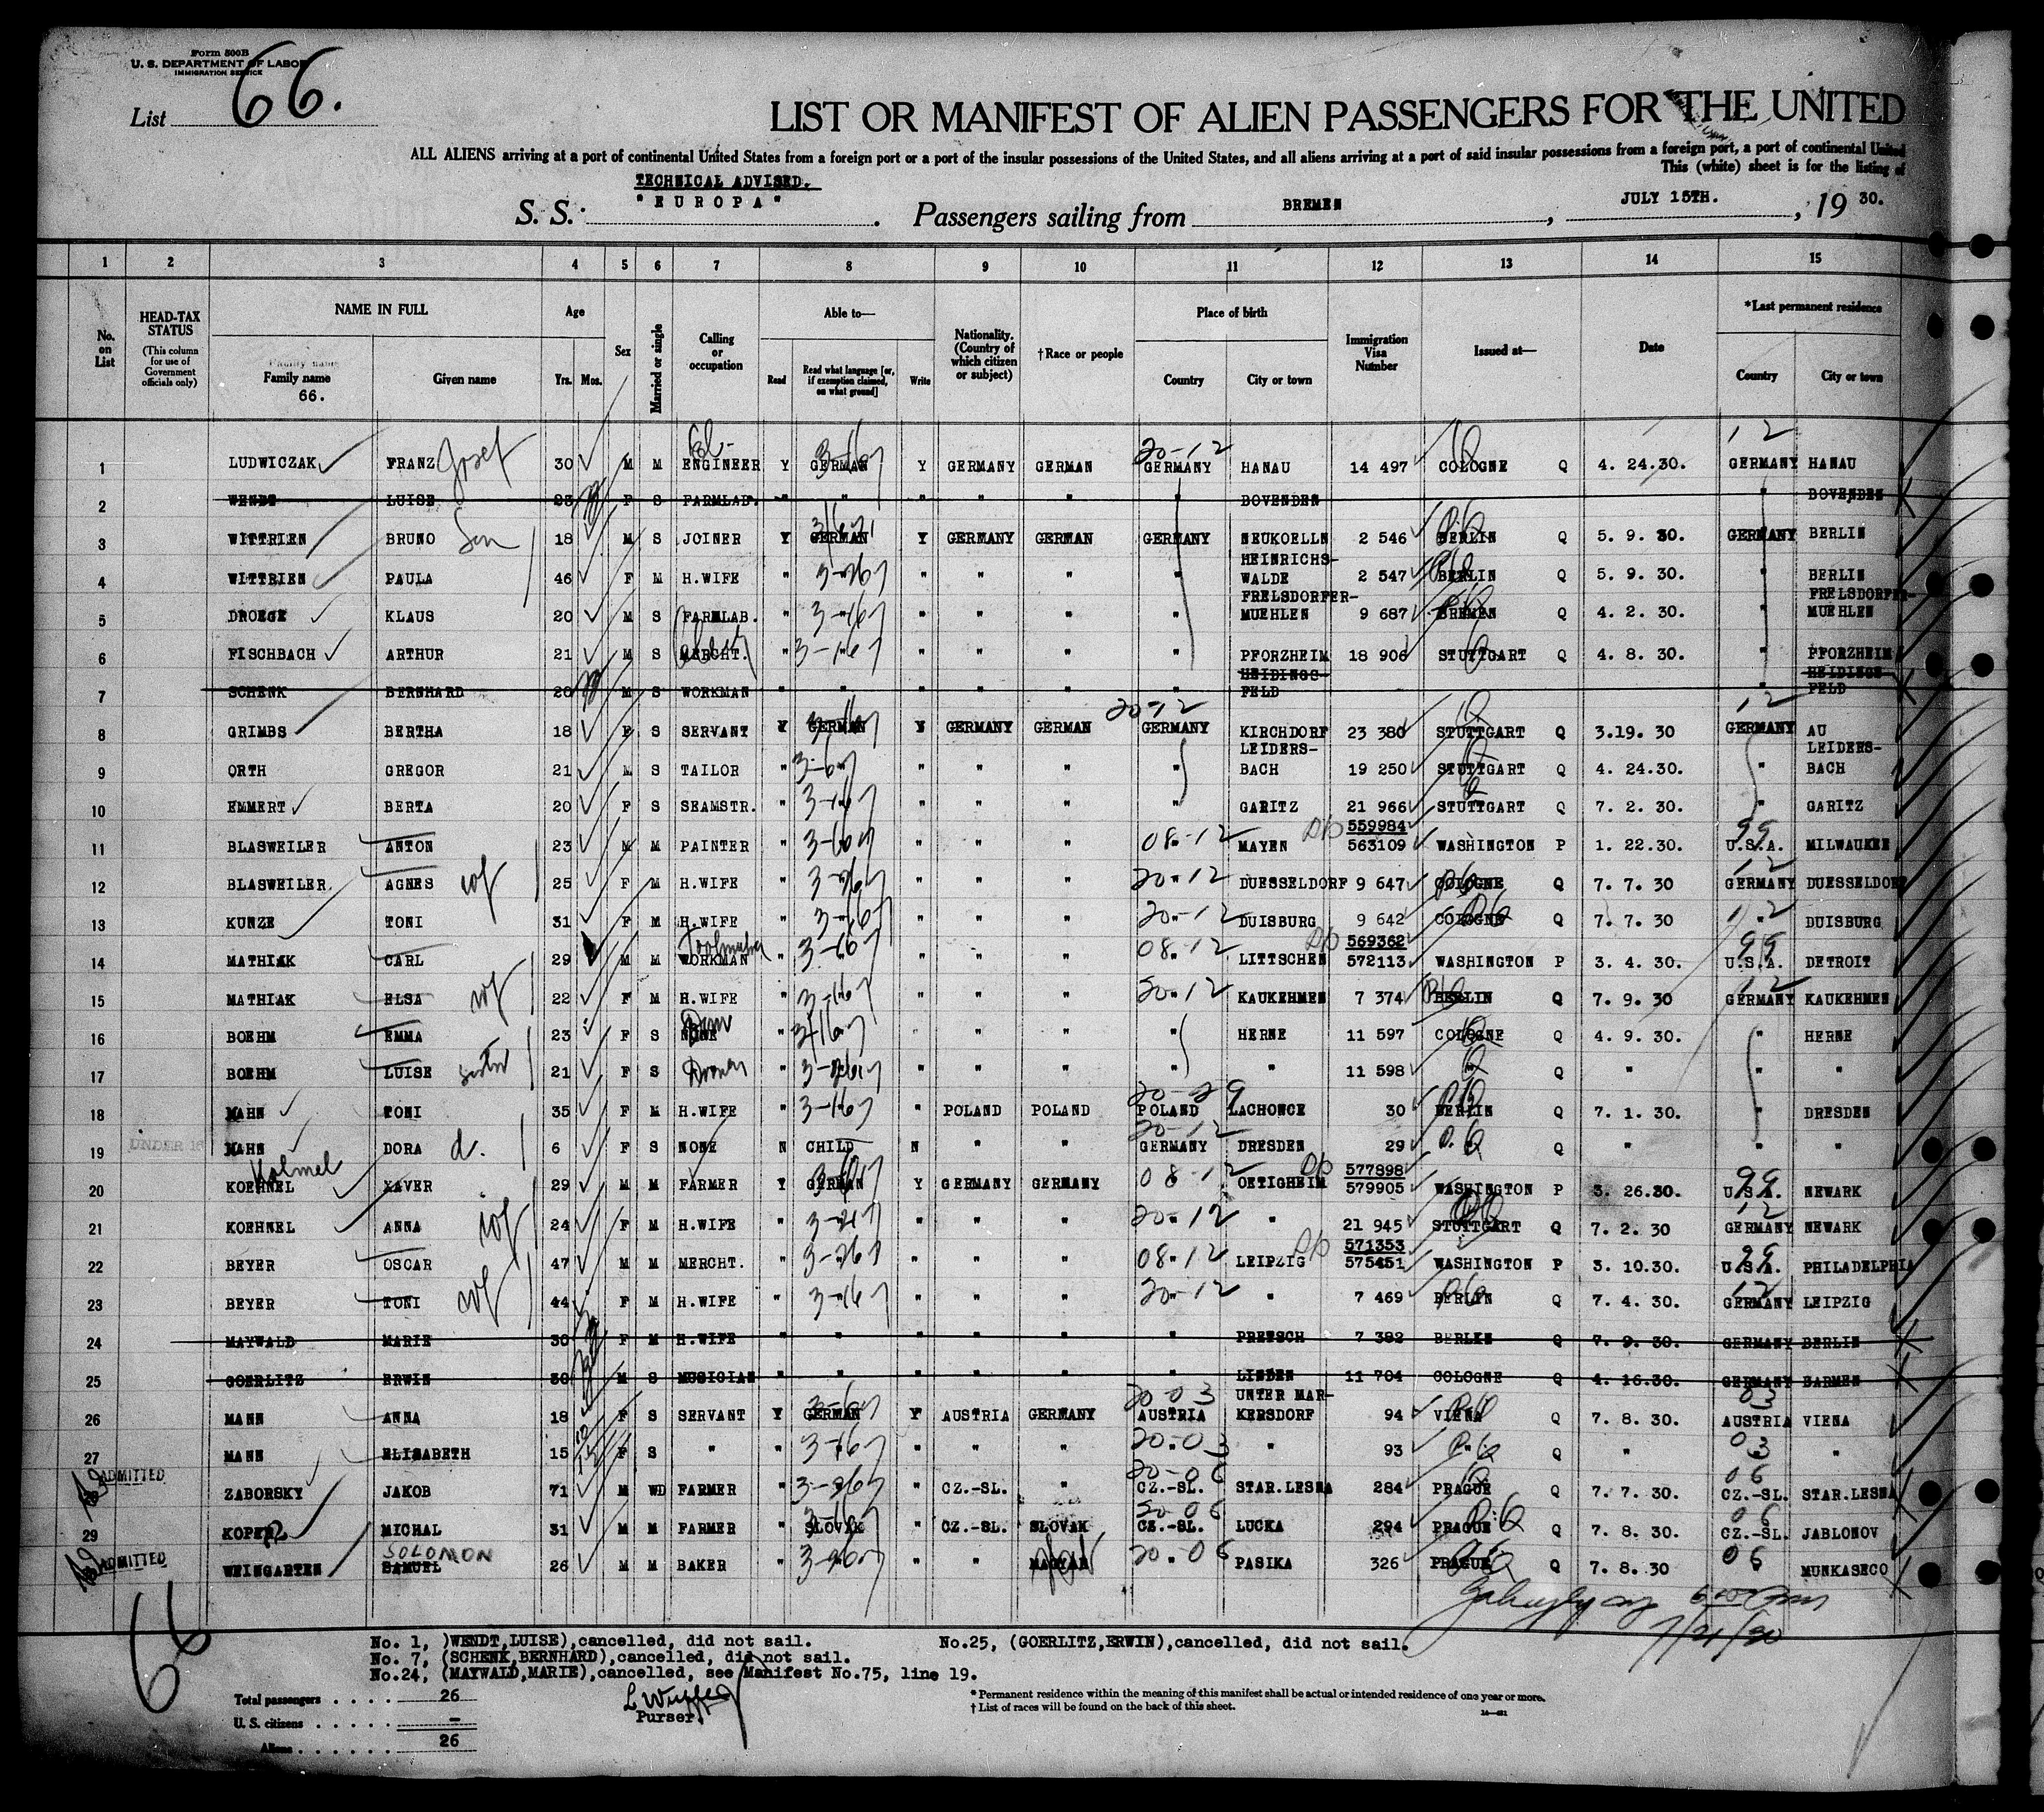 Form 500B
U. S. DEPARTMENT OF LABOR
IMMIGRATION SERVICE
List 66.
LIST OR MANIFEST OF ALIEN PASSENGERS FOR THE UNITED
ALL ALIENS arriving at a port of continental United States from a foreign port or a port of the insular possessions of the United States, and all aliens arriving at a port of said insular possessions from a foreign port, a port of continental United
This (white) sheet is for the listing of
TECHNICAL ADVISED.
S. S. "EUROPA". Passengers sailing from BREMEN, JULY 15TH., 1930.
1 2 3 4 5 6 7 8 9 10 11 12 13 14 15
No. on List
HEAD-TAX STATUS (This column for use of Government officials only)
NAME IN FULL
Family name 66.
Given name
Age Yrs. Mos.
Sex
Married or single
Calling or occupation
Able to—
Read
Read what language [or, if exemption claimed, on what ground]
Write
Nationality. (Country of which citizen or subject)
†Race or people
Place of birth
Country
City or town
Immigration Visa Number
Issued at—
Date
*Last permanent residence
Country
City or town
1 LUDWICZAK FRANZ Josef 30 M M ENGINEER Y GERMAN Y GERMANY GERMAN 20-12 GERMANY HANAU 14 497 COLOGNE Q 4. 24.30. 12 GERMANY HANAU
2 WENDT LUISE 23 F S FARMLAB. " " " " " " BOVENDEN " BOVENDEN
3 WITTRIEN BRUNO Son 18 M S JOINER Y GERMAN Y GERMANY GERMAN GERMANY NEUKOELLN 2 546 BERLIN Q 5. 9. 30. GERMANY BERLIN
4 WITTRIEN PAULA 46 F M H.WIFE " " " " " HEINRICHS-WALDE 2 547 BERLIN Q 5. 9. 30. " BERLIN
5 DROEGE KLAUS 20 M S FARMLAB. " 3-167 " " " " FRELSDORFER-MUEHLEN 9 687 BREMEN Q 4. 2. 30. " FRELSDORFER-MUEHLEN
6 FISCHBACH ARTHUR 21 M S MERCHT. " 3-167 " " " " PFORZHEIM 18 906 STUTTGART Q 4. 8. 30. " PFORZHEIM
7 SCHENK BERNHARD 20 M S WORKMAN " " " " " " HEIDINGS-FELD " HEIDINGS-FELD
8 GRIMBS BERTHA 18 F S SERVANT Y GERMAN Y GERMANY GERMAN 20-12 GERMANY KIRCHDORF 23 380 STUTTGART Q 3.19. 30 12 GERMANY AU
9 ORTH GREGOR 21 M S TAILOR " " " " " LEIDERS-BACH 19 250 STUTTGART Q 4. 24.30. " LEIDERS-BACH
10 EMMERT BERTA 20 F S SEAMSTR. " 3-167 " " " " GARITZ 21 966 STUTTGART Q 7. 2. 30. " GARITZ
11 BLASWEILER ANTON 23 M M PAINTER " " " " 08-12 MAYEN 559984 563109 WASHINGTON P 1. 22.30. 99 U.S.A. MILWAUKEE
12 BLASWEILER AGNES wf 25 F M H.WIFE " " " " 20-12 DUESSELDORF 9 647 COLOGNE Q 7. 7. 30 12 GERMANY DUESSELDORF
13 KUNZE TONI 31 F M H.WIFE " 3-167 " " " 20-12 DUISBURG 9 642 COLOGNE Q 7. 7. 30 12 " DUISBURG
14 MATHIAK CARL 29 M M WORKMAN Toolmaker " 3-167 " " " 08-12 LITTSCHEN 569362 572113 WASHINGTON P 3. 4. 30. 99 U.S.A. DETROIT
15 MATHIAK ELSA wf 22 F M H.WIFE " 3-167 " " " 20-12 KAUKEHMEN 7 374 BERLIN Q 7. 9. 30 12 GERMANY KAUKEHMEN
16 BOEHM EMMA 23 F S NONE " " " " " HERNE 11 597 COLOGNE Q 4. 9. 30. " HERNE
17 BOEHM LUISE sister 21 F S " " " " " " 11 598 " Q " " "
18 MAHN TONI 35 F M H.WIFE " 3-167 " POLAND POLAND 20-29 POLAND LACHONCE 30 BERLIN Q 7. 1. 30. " DRESDEN
19 UNDER 16 MAHN DORA d. 6 F S NONE N CHILD N " " 20-12 GERMANY DRESDEN 29 " Q " " "
20 KOEHNEL Kolmel XAVER 29 M M FARMER Y GERMAN Y GERMANY GERMANY 08-12 OETIGHEIM 577898 579905 WASHINGTON P 3. 26.30. 99 U.S.A. NEWARK
21 KOEHNEL ANNA wf 24 F M H.WIFE " " " " 20-12 " 21 945 STUTTGART Q 7. 2. 30 12 GERMANY NEWARK
22 BEYER OSCAR 47 M M MERCHT. " " " " 08-12 LEIPZIG 571353 575451 WASHINGTON P 3. 10.30. 99 U.S.A. PHILADELPHIA
23 BEYER TONI wf 44 F M H.WIFE " 3-167 " " " 20-12 " 7 469 BERLIN Q 7. 4. 30. 12 GERMANY LEIPZIG
24 MAYWALD MARIE 30 F M H.WIFE " " " " " " PRETSCH 7 392 BERLIN Q 7. 9. 30. GERMANY BERLIN
25 GOERLITZ ERWIN 30 M S MUSICIAN " " " " " " LINDEN 11 704 COLOGNE Q 4. 16.30. GERMANY BARMEN
26 MANN ANNA 18 F S SERVANT Y GERMAN Y AUSTRIA GERMANY 20-03 AUSTRIA UNTER MAR-KERSDORF 94 VIENA Q 7. 8. 30. 03 AUSTRIA VIENA
27 MANN ELISABETH 15 F S " " 3-167 " " " 20-03 " 93 " Q " 03 "
ADMITTED ZABORSKY JAKOB 71 M WD FARMER " " CZ.-SL. " 20-06 CZ.-SL. STAR.LESNA 284 PRAGUE Q 7. 7. 30. 06 CZ.-SL. STAR.LESNA
29 MICHAL 31 M M FARMER " SLOVAK " CZ.-SL. SLOVAK 20-06 CZ.-SL. LUCKA 294 PRAGUE Q 7. 8. 30. 06 CZ.-SL. JABLONOV
ADMITTED WEINGARTEN SAMUEL SOLOMON 26 M M BAKER " " " MAGYAR 20-06 PASIKA 326 PRAGUE Q 7. 8. 30 06 MUNKASECO
7/21/30
66
No. 1, )WENDT,LUISE),cancelled, did not sail.
No.25, (GOERLITZ,ERWIN),cancelled, did not sail.
No. 7, (SCHENK,BERNHARD),cancelled, did not sail.
No.24, (MAYWALD,MARIE),cancelled, see Manifest No.75, line 19.
Total passengers . . . . 26
U. S. citizens . . . . . –
Aliens . . . . . . 26
Purser.
* Permanent residence within the meaning of this manifest shall be actual or intended residence of one year or more.
† List of races will be found on the back of this sheet.